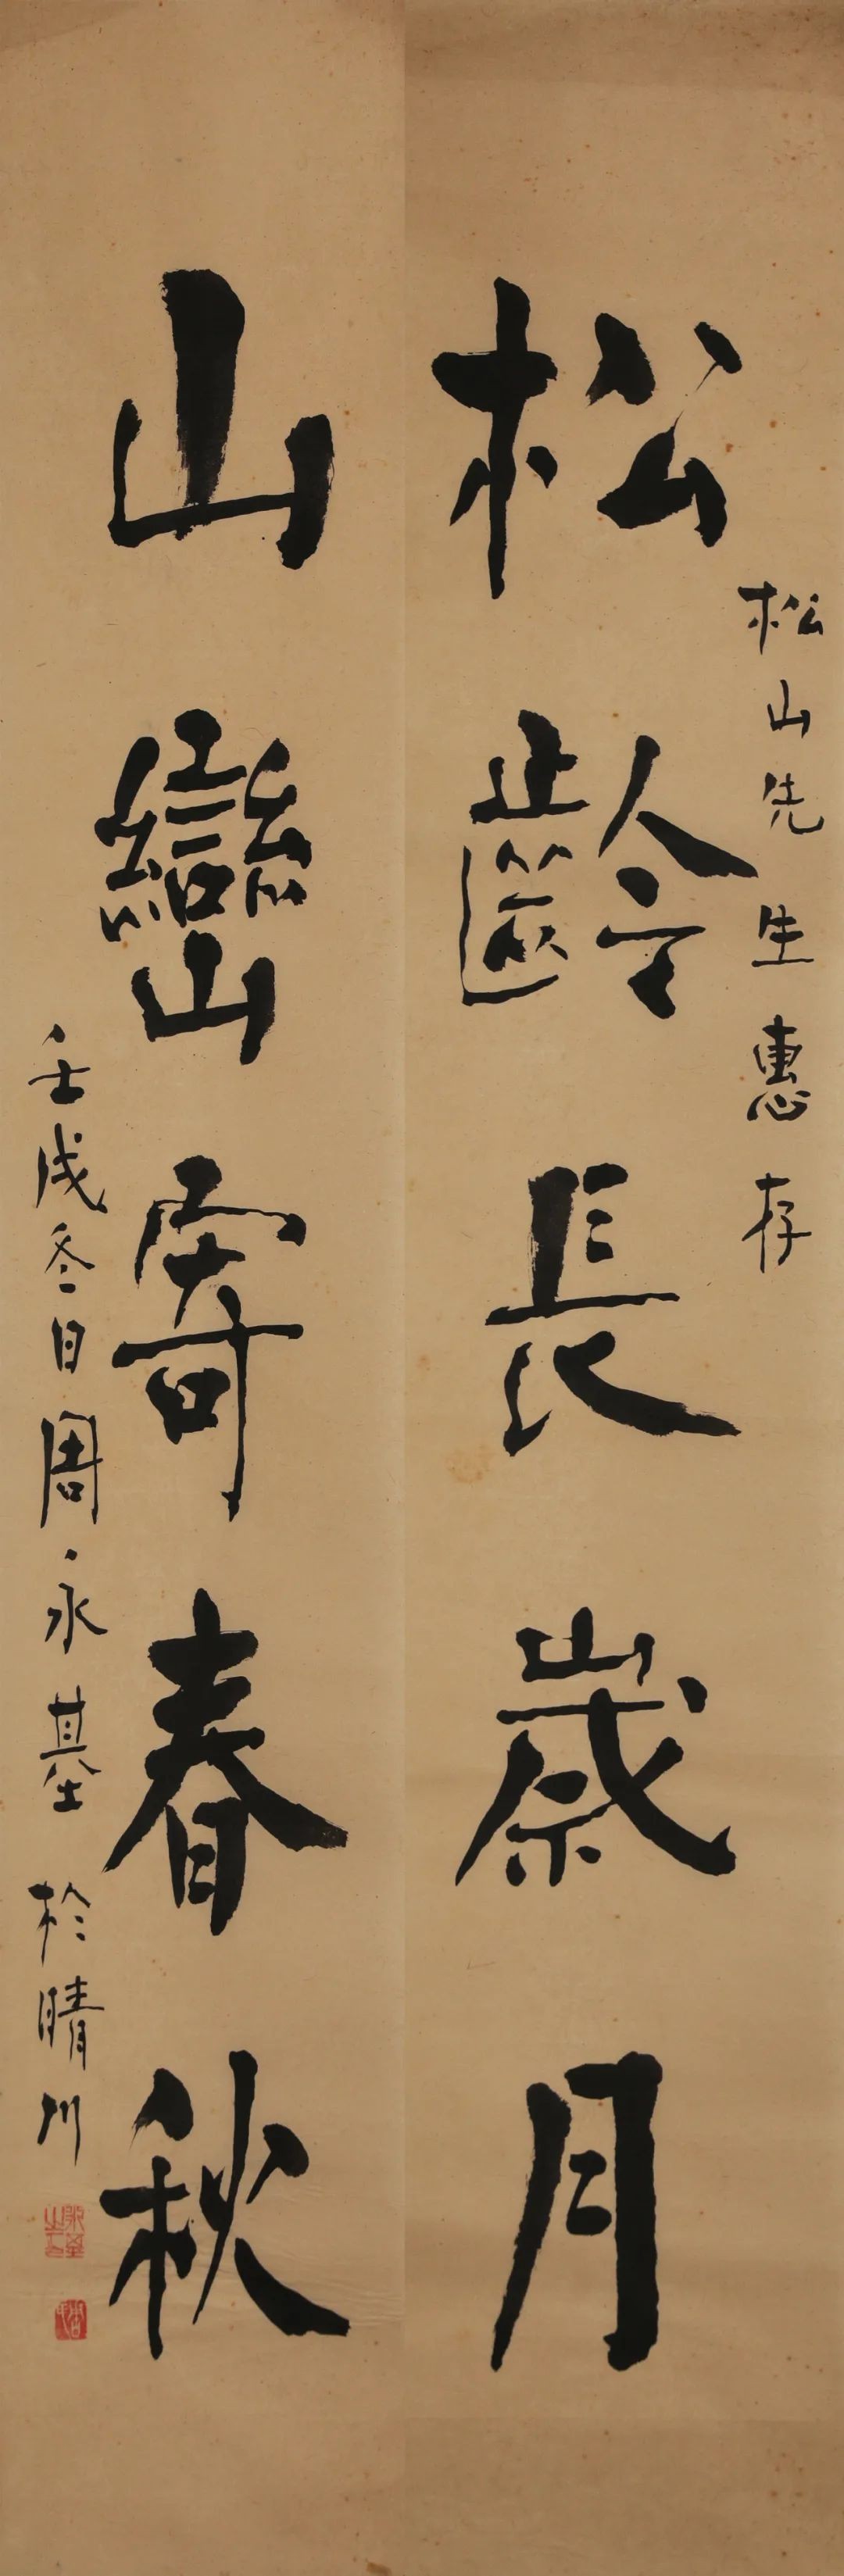 松山先生惠存
松齡長歲月
山巒寄春秋
壬戌冬日周永基於晴川